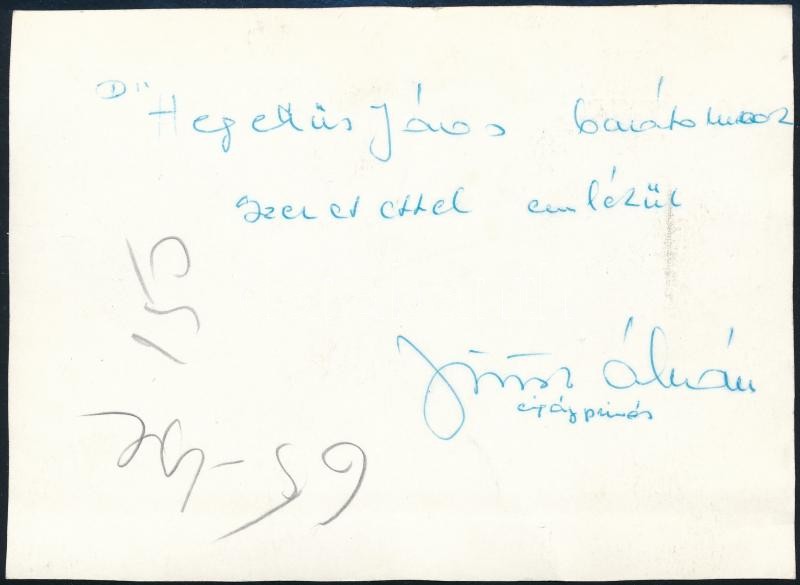 D" Hegedűs János barátomnak
szeretettel emlékül
Álmán
cigányprímás
155